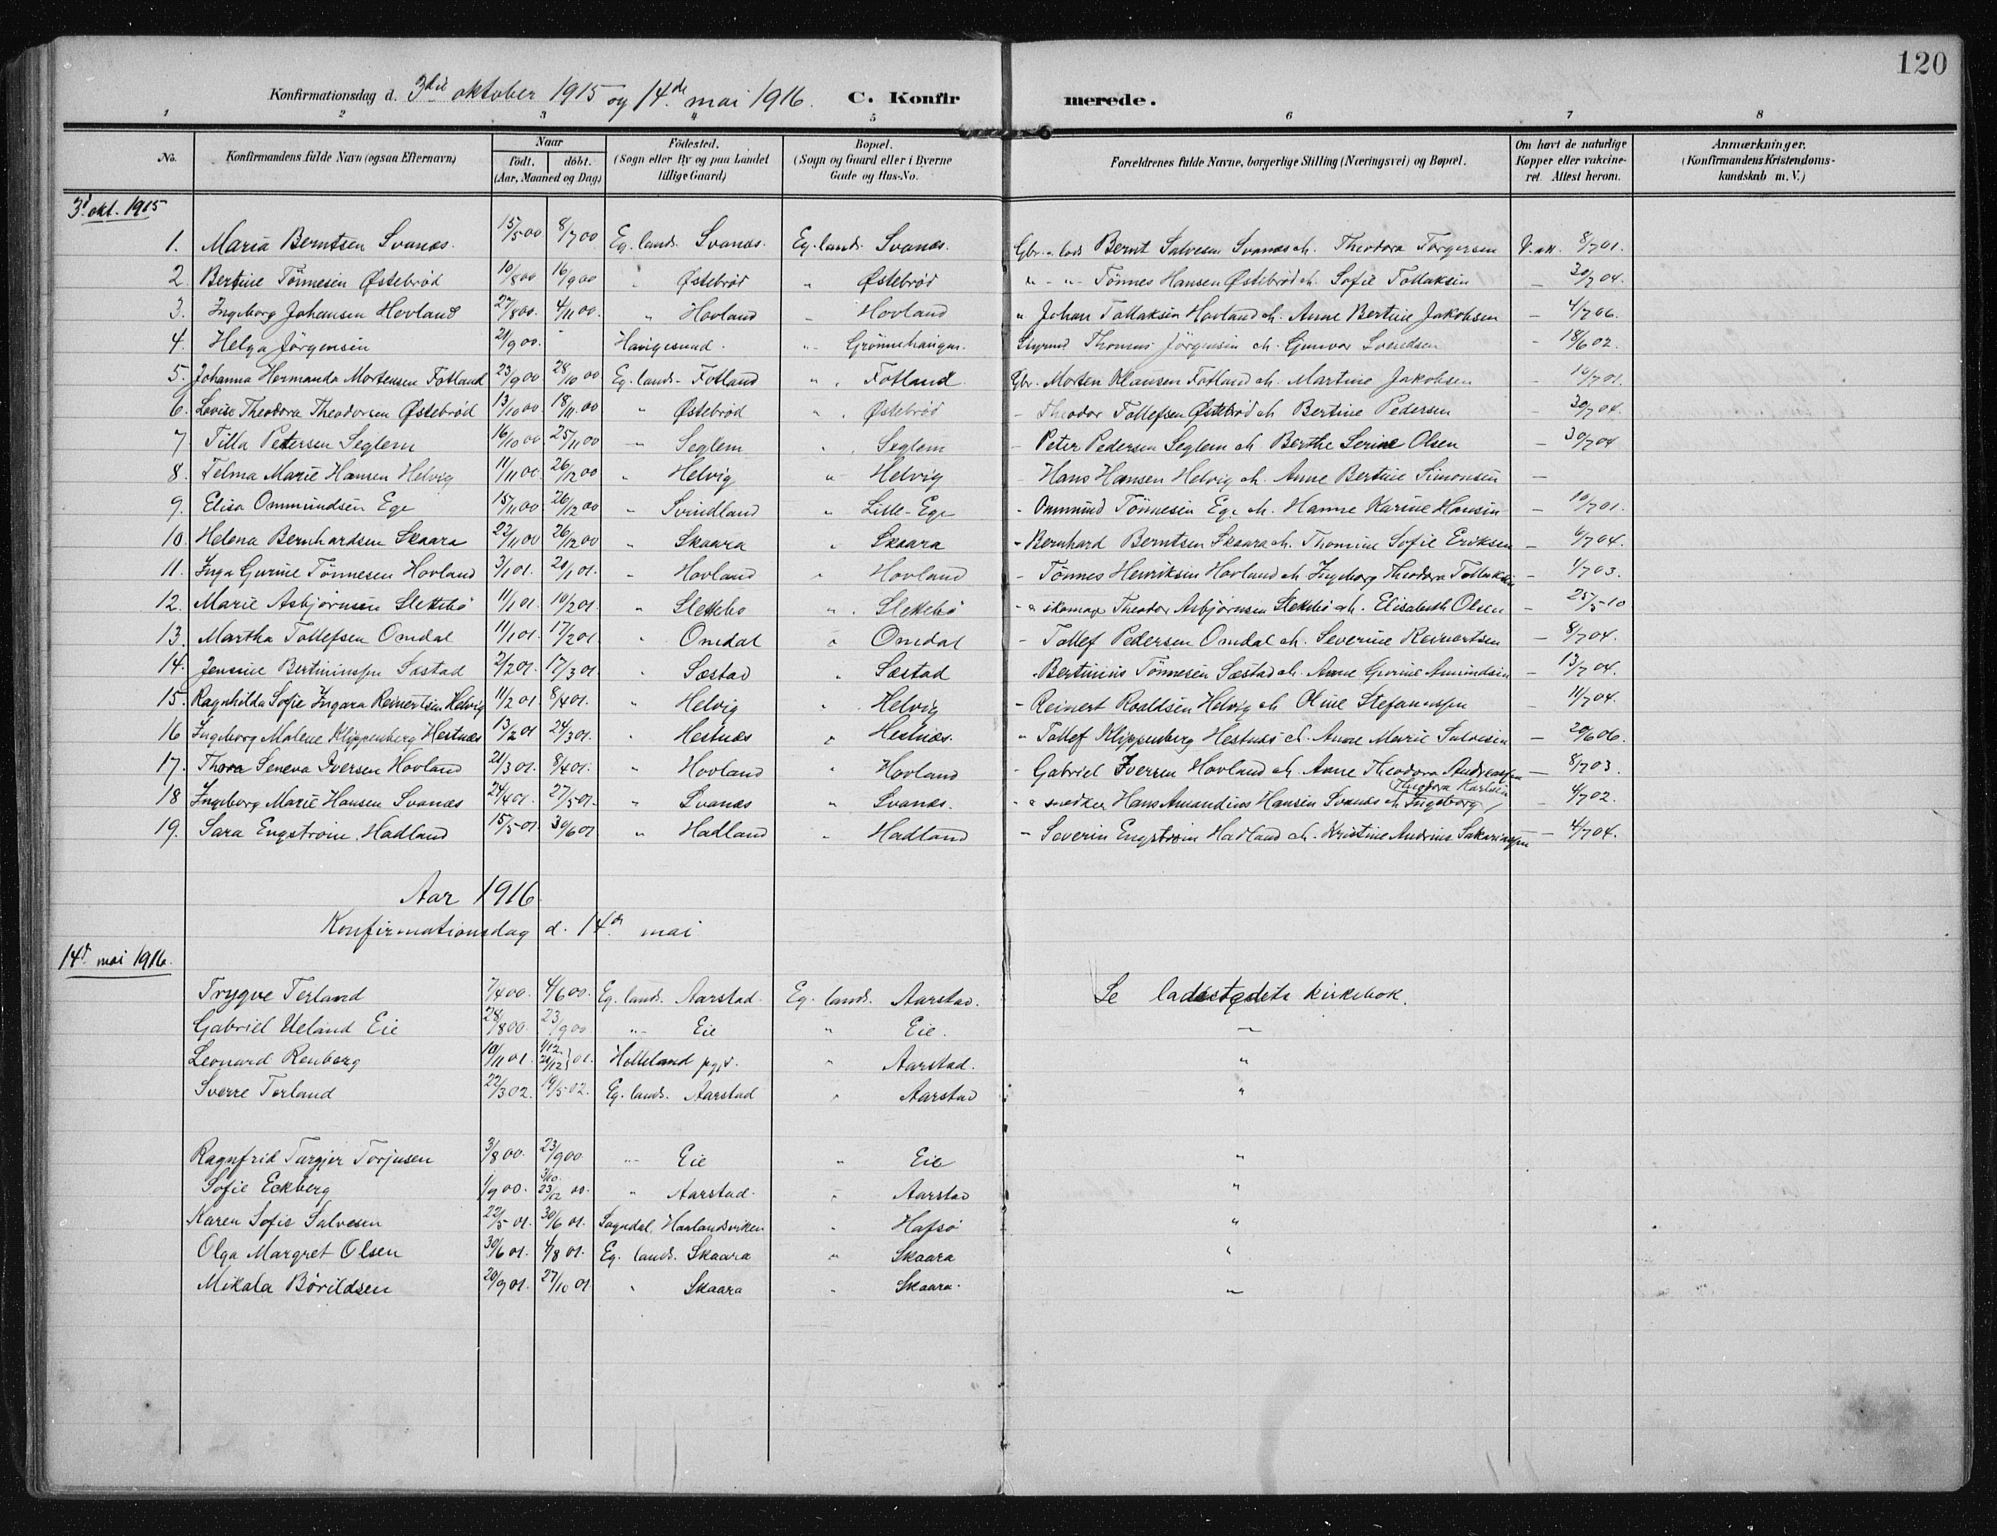 120
Konfirmationsdag d. 3die oktober 1915 og 14de mai 1916. C. Konfirmerede.
1 2 3 4 5 6 7 8
No. Konfirmandens fulde Navn (ogsaa Efternavn) Naar født. døbt. (Aar, Maaned og Dag) Fødested. (Sogn eller By og paa Landet tillige Gaard) Bopæl. (Sogn og Gaard eller i Byerne Gade og Hus-No. Forældrenes fulde Navne, borgerlige Stilling (Næringsvei) og Bopæl. Om havt de naturlige Kopper eller vakcineret. Attest herom. Anmærkninger. (Konfirmandens Kristendomskundskab m. V.)
3d okt. 1915
1. Maria Berntsen Svanæs. 15/5 00 8/7 00 Eg. lands. Svanæs. Eg. lands. Svanæs. Gbr. Bernt Salvesen Svanæs Theodora Torgersen V. att. 8/7 01.
2. Bertine Tønnesen Østebrød 10/8 00 16/9 00 " Østebrød " Østebrød " - " - Tønnes Hansen Østebrød Sofie Tollaksen — 30/7 04.
3. Ingeborg Johansen Hovland 27/8 00 4/11 00 " Hovland " Hovland " Johan Tollaksen Hovland Anne Bertine Jakobsen — 4/7 06.
4. Helga Jørgensen 21/9 00. - Haugesund. " Grønnehaugen Styrmd Thomas Jørgensen Gunvor Svendsen — 18/6 02.
5. Johanna Hermanda Mortensen Fotland 23/9 00 28/10 00 Eg. lands. Fotland " Fotland. Gbr. Morten Klausen Fotland Martine Jakobsen — 10/7 01.
6. Lovise Theodora Theodorsen Østebrød 13/10 00 18/11 00 " Østebrød " Østebrød - Theodor Tollefsen Østebrød Bertine Pedersen — 30/7 04.
7 Tilla Petersen Seglem 16/10 00 25/11 00 " Seglem " Seglem - Peter Pedersen Seglem Berthe Serine Olsen — 30/7 04
8. Telma Marie Hansen Helvig 11/11 00 26/12 00 " Helvig " Helvig - Hans Hansen Helvig Anne Bertine Simonsen —
9. Elisa Ommundsen Ege 15/11 00 26/12 00 " Svindland " Lille-Ege - Ommund Tønnesen Ege Hanne Karine Hansen — 10/7 01.
10. Helena Bernhardsen Skaara 22/11 00 26/12 00 " Skaara " Skaara - Bernhard Berntsen Skaara Thomine Sofie Eriksen — 6/7 04.
11. Inga Gurine Tønnesen Hovland 3/1 01. 20/1 01. " Hovland " Hovland - Tønnes Henriksen Hovland Ingeborg Theodora Tollaksen — 1/7 03.
12. Marie Asbjørnsen Slettebø 11/1 01 10/2 01. " Slettebø " Slettebø - skomag. Theodor Asbjørnsen Slettebø Elisabeth Olsen — 25/5 10
13. Martha Tollefsen Omdal 11/1 01. 17/2 01. " Omdal " Omdal - Tollef Pedersen Omdal Severine Reinertsen — 8/7 04.
14. Jensine Bertinussen Sæstad 2/2 01. 17/3 01 " Sæstad " Sæstad - Bertinius Tønnesen Sæstad Anne Gurine Amundsen — 13/7 04.
15. Ragnhilda Sofie Ingara Reinertsen Helvig 11/2 01 8/4 01. " Helvig " Helvig - Reinert Roaldsen Helvig Oline Stefanussen — 11/7 04.
16 Ingeborg Malene Klippenberg Hestnæs 13/2 01 24/3 01. " Hestnæs " Hestnæs. " Tollef Klippenberg Hestnæs Anne Marie Salvesen — 20/6 06.
17. Thora Seneva Iversen Hovland 21/3 01. 8/4 01. " Hovland " Hovland - Gabriel Iversen Hovland Anne Theodora Andreassen — 8/7 03.
18 Ingeborg Marie Hansen Svanæs 24/4 01. 27/5 01. " Svanæs " Svanæs. - snedker Hans Amandius Hansen Svanæs Ingeborg Theodora Karlsen — 4/7 02.
19. Sara Engstrøm Hadland 15/5 01. 30/6 01 " Hadland " Hadland - Severin Engstrøm Hadland Kristine Andrine Sakariassen — 4/7 04.
Aar 1916
Konfirmationsdag d. 14de mai
14d mai 1916.
Trygve Terland 7/4 00. 4/6 00. Eg. lands. Aarstad. Eg. lands. Aarstad. Se ladestedets kirkebok.
Gabriel Ueland Eie 28/8 00. 23/9 00. " Eie " Eie. "
Leonard Renberg 10/11 01 1/12 26/12 } 01. Helleland pgjd. " Aarstad. "
Sverre Terland 22/3 02. 19/5 02. Eg. lands. Aarstad " Aarstad "
Ragnfrid Targjer Torjusen 3/8 00. 23/9 00. " Eie " Eie "
Sofie Eckberg 1/9 00. 3/10. 23/12 00. " Aarstad. " Aarstad "
Karen Sofie Salvesen 22/5 01. 30/6 01. Sogndal, Haalandsviken " Hafsø "
Olga Margret Olsen 30/6 01. 4/8 01. Eg. lands. Skaara " Skaara "
Mikala Børildsen 20/9 01. 27/10 01. " Skaara " Skaara. "